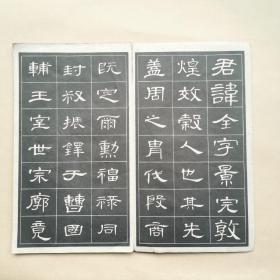 君諱全字景完敦
煌效穀人也其先
蓋周之胄伐殷商
既定爾勳福祿同
封叔振鐸于曹國
輔王室世宗廓竟